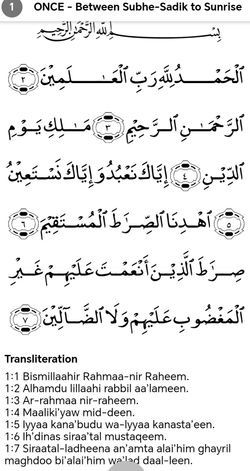 1 ONCE - Between Subhe-Sadik to Sunrise
بِسْمِ اللَّهِ الرَّحْمَٰنِ الرَّحِيمِ
الْحَمْدُ لِلَّهِ رَبِّ الْعَالَمِينَ ٢
الرَّحْمَٰنِ الرَّحِيمِ ٣ مَالِكِ يَوْمِ
الدِّينِ ٤ إِيَّاكَ نَعْبُدُ وَإِيَّاكَ نَسْتَعِينُ
٥ اهْدِنَا الصِّرَاطَ الْمُسْتَقِيمَ ٦
صِرَاطَ الَّذِينَ أَنْعَمْتَ عَلَيْهِمْ غَيْرِ
الْمَغْضُوبِ عَلَيْهِمْ وَلَا الضَّالِّينَ ٧
Transliteration
1:1 Bismillaahir Rahmaa-nir Raheem.
1:2 Alhamdu lillaahi rabbil aa'lameen.
1:3 Ar-rahmaa nir-raheem.
1:4 Maaliki'yaw mid-deen.
1:5 Iyyaa kana'budu wa-Iyyaa kanasta'een.
1:6 Ih'dinas siraa'tal mustaqeem.
1:7 Siraatal-ladheena an'amta alai'him ghayril
maghdoo bi'alai'him wa'lad daal-leen.